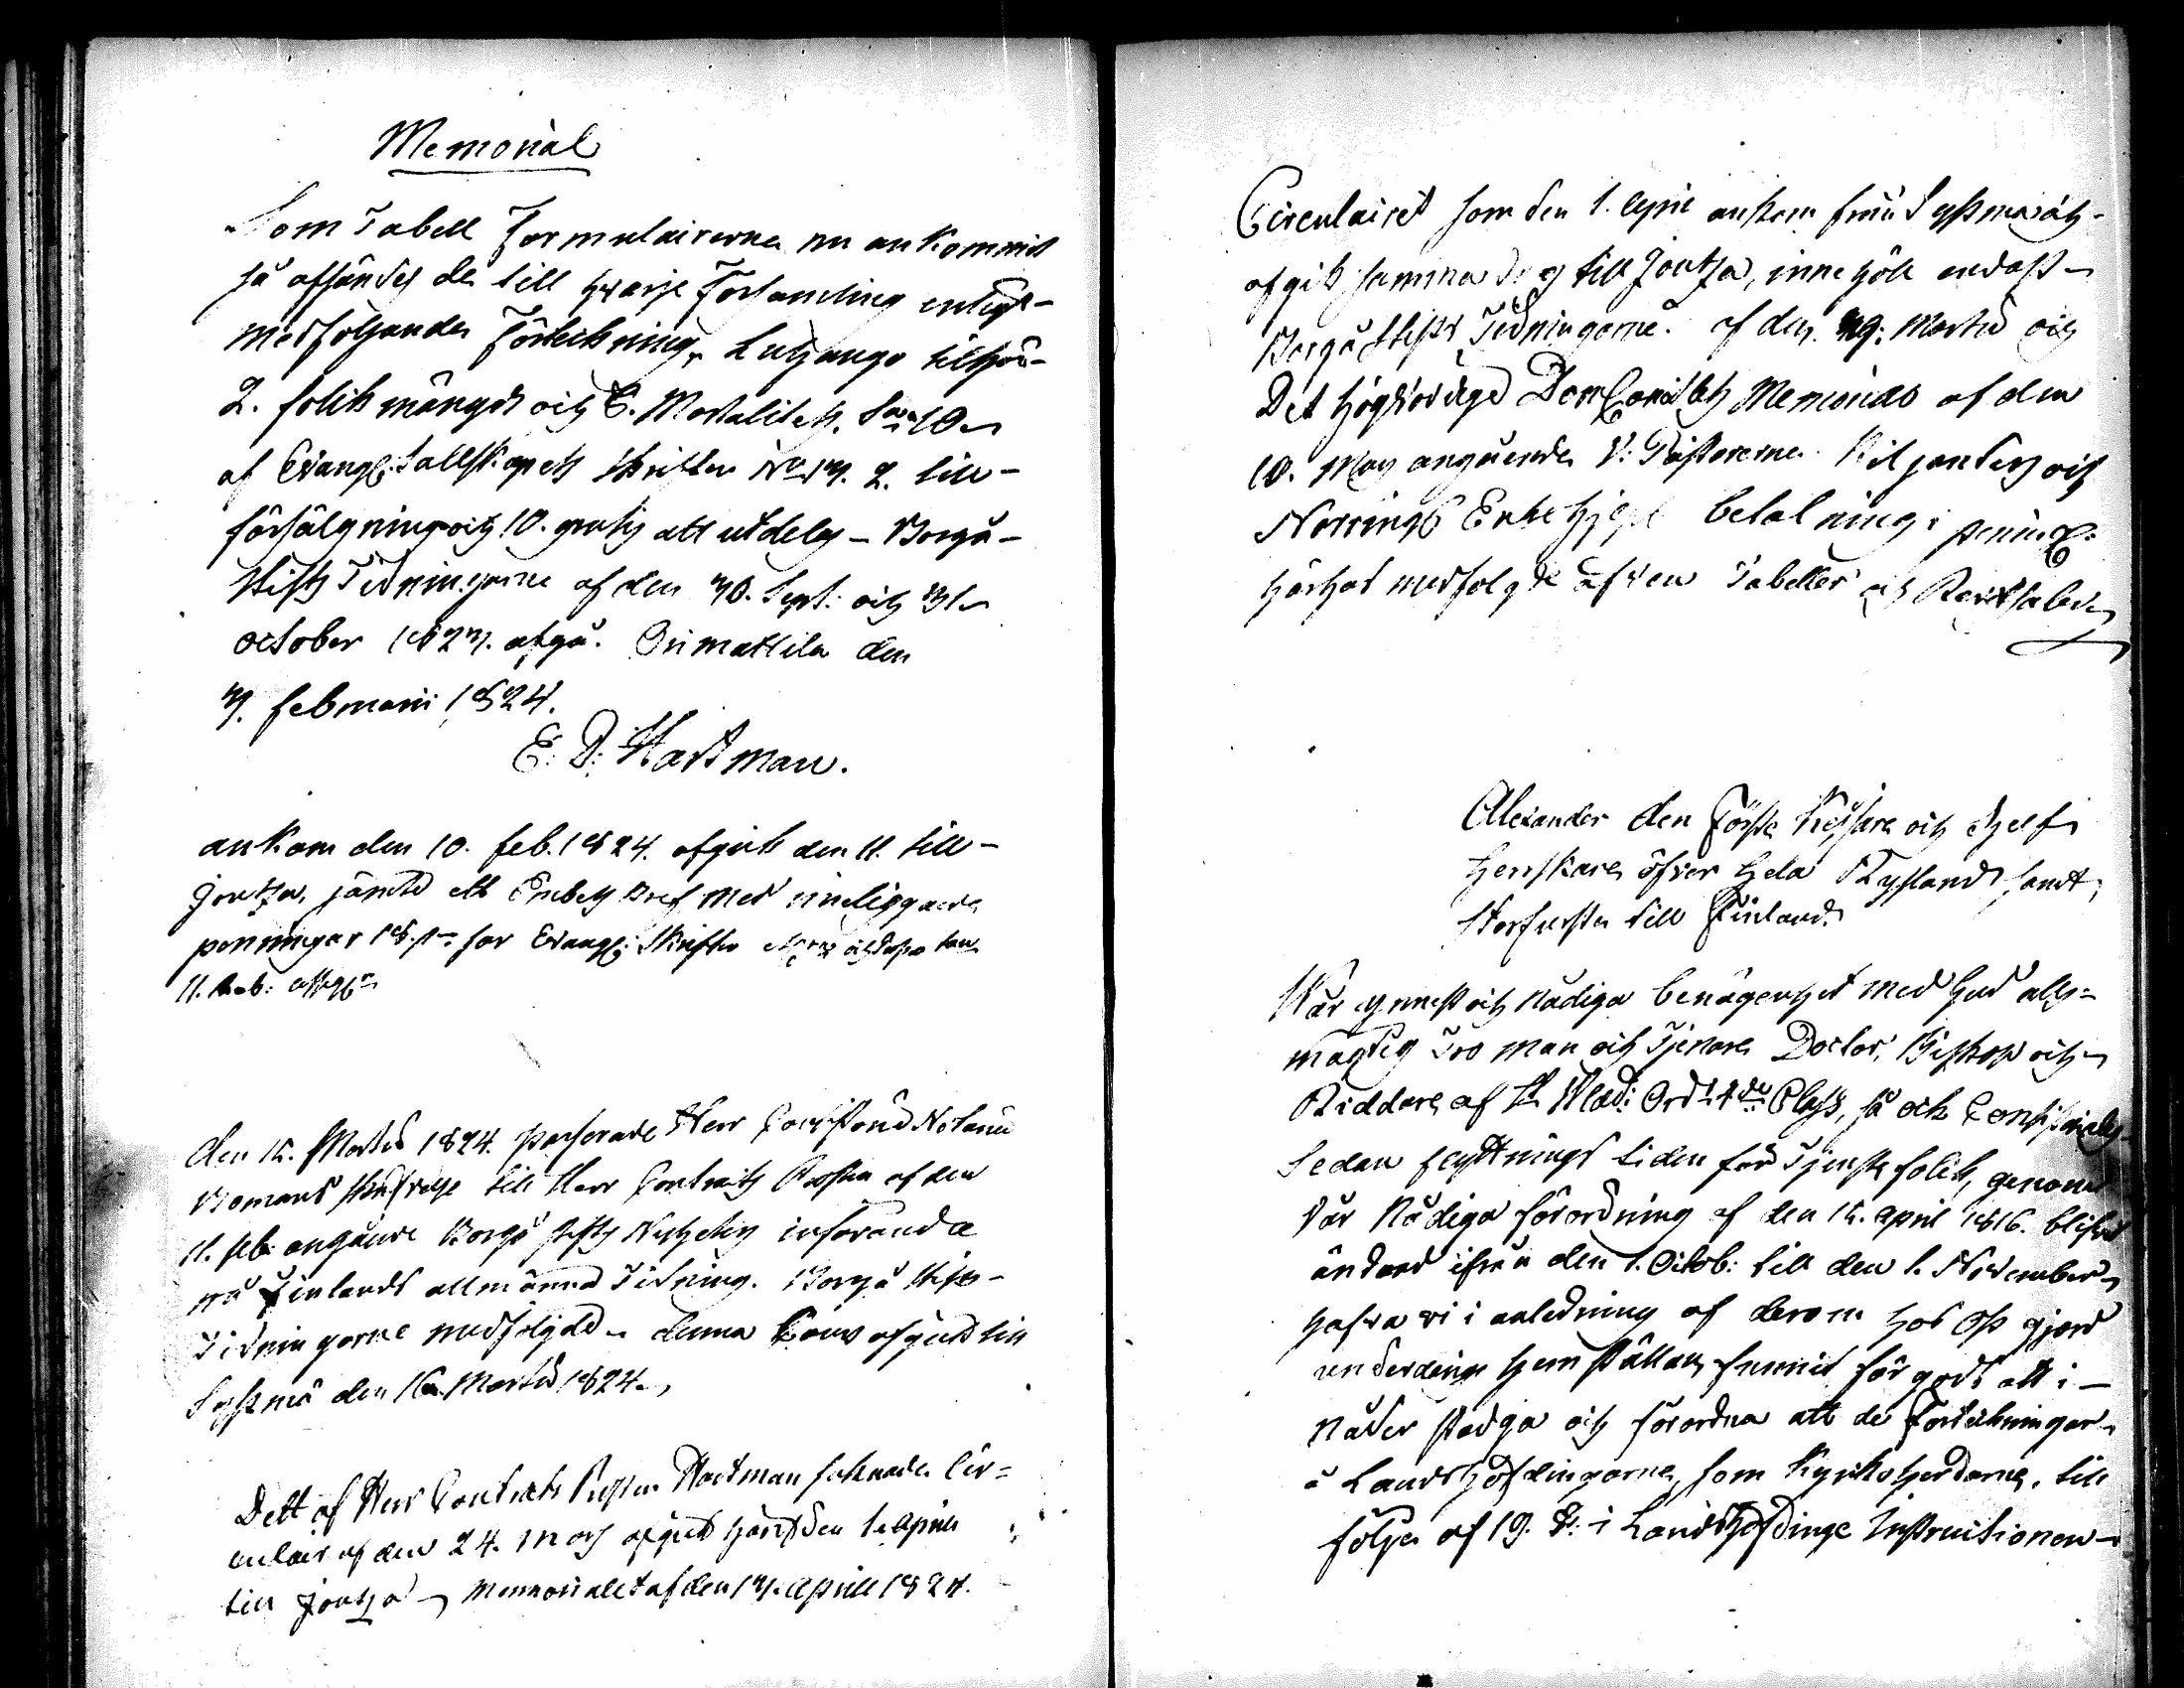 Memorial
Som Tabell Formulairerna nu ankommit
så afsändes de till hvarje Församling enligt
medföljande Förteckning,
2. folk mängds och 6. Mortalitets. 10
af Evang: Sällskapets skrifter No 17. 2. till
försälgning och 10. gratis att utdelas - Borgå
Stifts Tidningarne af den 30. Sept: och 31
october 1823. afgå. Orimattila den
3. februarii 1824.
E: D: Hartman.
ankom den 10. feb. 1824. afgick den 11. till
Joutza, jämte ett Embets bref med inneliggande
penningar för Evang: Skrifter
den 15. Martii 1824. passerade Herr Consistorii Notarii
Bomans skrifvelse till Herr Contracts Prosten af den
11. feb: angående Borgå stifts Nyheters införande
uti Finlands allmänna Tidning. Borgå stifts
Tidningarne medfölgde denna Couv afgick till
Sysmä den 16. Martii 1824.
Dett af Herr Contracts Prosten Hartman Cir=
culair af den 24. Mars afgick härifrån den 1. April
till Joutza Memorialet af den 13. Aprill 1824.
Circulairet som den 1. April ankom från Sysmä och
afgick samma dag till Joutza, innehöll endast
Borgå Stifts Tidningarne af den 29. Martii och
Det Högvördige DomCapitlets Memorial af den
10. May angående V: Pastorerne Kiljanders och
Norrings Enkehjelps betalning:
härhos medfölgde äfven Tabeller och
Alexander den Förste Kejsare och Sjelf
Herrskare öfver hela Ryssland samt
Storfurste till Finland.
Vår ynnest och Nådiga benägenhet med Gud alls=
mägtig Tro man och Tjenare Doctor, Biskop och
Riddare af St Wlad: Ord: 4de Class, så ock Consistoriales
Sedan flyttnings tiden för Tjenste folck, genom
Vår Nådiga förordning af den 15. April 1816. blifvit
ändrad ifrån den 1. Octob: till den 1. November
hafva vi i anledning af derom hos Oss gjord
underdånig hemställan, funnit för godt att i
Nåder stadga och förordna att de Förteckningar
å Landshöfdingarne, som Kyrkoherdarne, till
följe af 19. §: i Landshöfdinge Instructionen